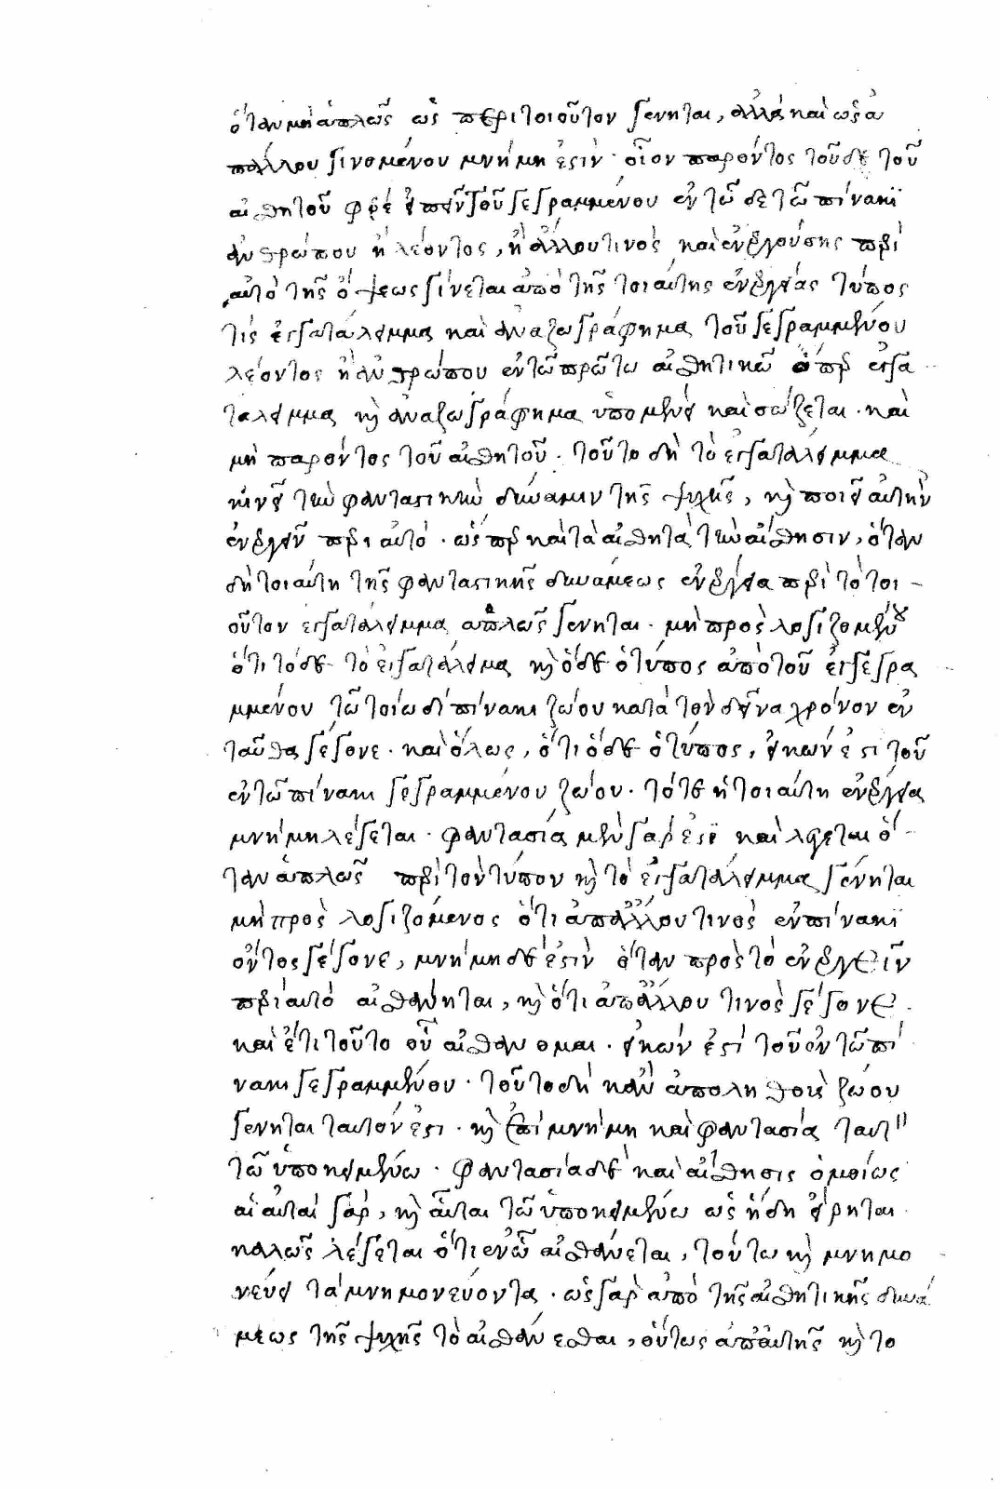 ὅταν μὴ ἁπλῶς ὡς περὶ τοιοῦτον γένηται, ἀλλὰ καὶ ὡς ἀ
πάλλου γινομένου μνήμη ἐστὶν· οἷον παρόντος τοῦδε τοῦ
αἰσθητοῦ τοῦ γεγραμμένου ἐν τῶδε τῶ πίνακι
ἀνθρώπου ἢ λέοντος, ἢ ἄλλου τινος καὶ ἐνεργούσης περὶ
αὐτὸ τῆς ὄψεως γίνεται ἀπὸ τῆς τοιαύτης ἐνεργείας τύπος
τις ἐγκατάλειμμα καὶ ἀναζωγράφημα τοῦ γεγραμμένου
λέοντος ἢ ἀνθρώπου ἐν τῶ πρώτω αἰσθητικῶ ὅπερ ἐγκα
τάλειμμα καὶ ἀναζωγράφημα ὑπομένει καὶ σώζεται· καὶ
μὴ παρόντος τοῦ αἰσθητοῦ· τοῦτο δὴ τὸ ἐγκατάλειμμα
κινεῖ τὴν φανταστικὴν δύναμιν τῆς ψυχῆς, καὶ ποιεῖ αὐτὴν
ἐνεργεῖν περὶ αὐτό· ὥσπερ καὶ τὰ αἰσθητὰ τὴν αἴσθησιν, ὅταν
δὴ τοιαύτη τῆς φανταστικῆς δυνάμεως ἐνέργεια περὶ τὸ τοι-
οῦτον ἐγκατάλειμμα ἁπλῶς γένηται· μὴ προσλογιζομένου
ὅτι τόδε τὸ ἐγκατάλειμα καὶ ὅδε ὁ τύπος ἀπὸ τοῦ ἐγγεγρα
μμένου τῶ τοιῶδι πίνακι ζώου κατὰ τὸν δεῖνα χρόνον ἐν
ταῦθα γέγονε· καὶ ὅλως, ὅτι ὅδε ὁ τύπος, εἰκών ἐστι τοῦ
ἐν τῶ πίνακι γεγραμμένου ζώου· τότε ἡ τοιαύτη ἐνέργεια
μνήμη λέγεται· φαντασία μὲν γάρ ἐστι καὶ λέγεται ὅ-
ταν ἁπλῶς περὶ τὸν τύπον καὶ τὸ ἐγκατάλειμμα γένηται
μὴ προσλογιζόμενος ὅτι ἀπάλλου τινὸς ἐν πίνακι
ὄντος γέγονε, μνήμη δέ ἐστὶν ὅταν πρὸς τὸ ἐνεργεῖν
περὶ αὐτὸ αἰσθάνηται, καὶ ὅτι ἀπάλλου τινὸς γέγονε·
καὶ ἔτι τοῦτο οὗ αἰσθάνομαι· εἰκών ἐστι τοῦ ἐν τῶ πί
νακι γεγραμμένου· τοῦτο δὴ κἂν ἀπὸ ληθοις ζώου
γένηται ταυτόν ἐστι· καὶ ἐπὶ μνήμη καὶ φαντασία ταυτ
τῶ ὑποκειμένω· φαντασία δὲ καὶ αἴσθησις ὁμοίως
αἱ αὐταὶ γάρ, καὶ αὗται τῶ ὑποκειμένω ὡς ἤδη εἴρηται·
καλῶς λέγεται ὅτι ἐν ὧ αἰσθάνεται, τούτω καὶ μνημο
νεύει τὰ μνημονεύοντα· ὡς γὰρ ἀπὸ τῆς αἰσθητικῆς δυνά
μεως τῆς ψυχῆς τὸ αἰσθάνεσθαι, οὕτως ἀπ' αὐτῆς καὶ το